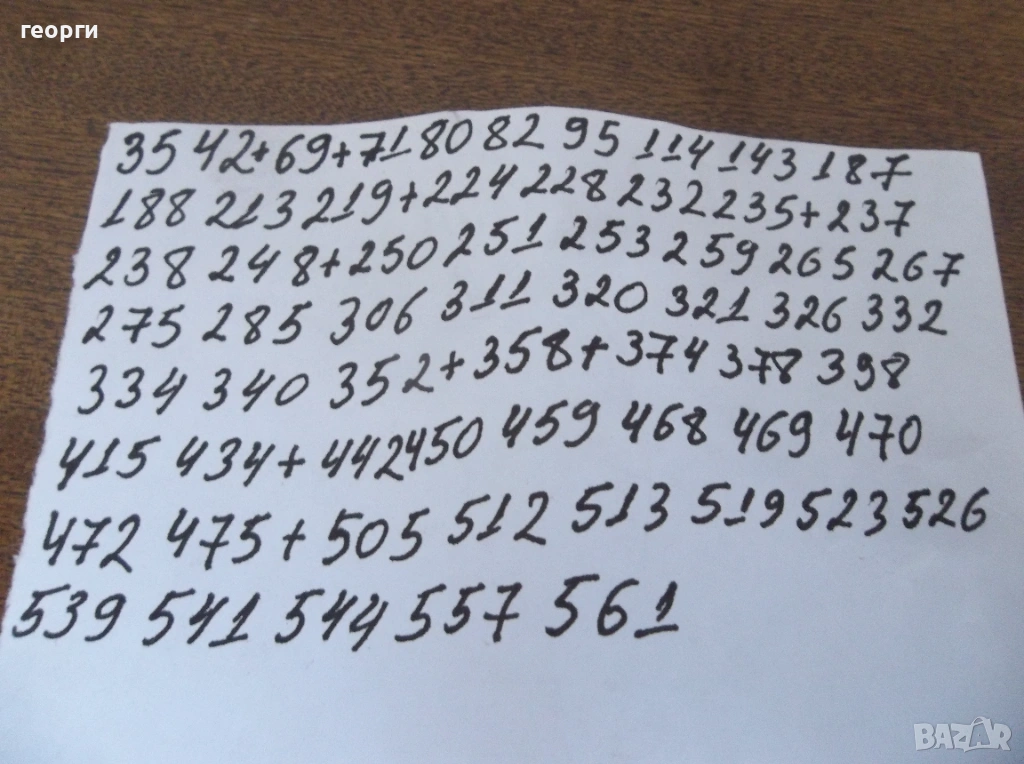 георги
35 42+69+71 80 82 95 114 143 187
188 213 219+224 228 232 235+237
238 248+250 251 253 259 265 267
275 285 306 311 320 321 326 332
334 340 352+358+374 378 398
415 434+442 450 459 468 469 470
472 475+505 512 513 519 523 526
539 541 544 557 561
BAZAR